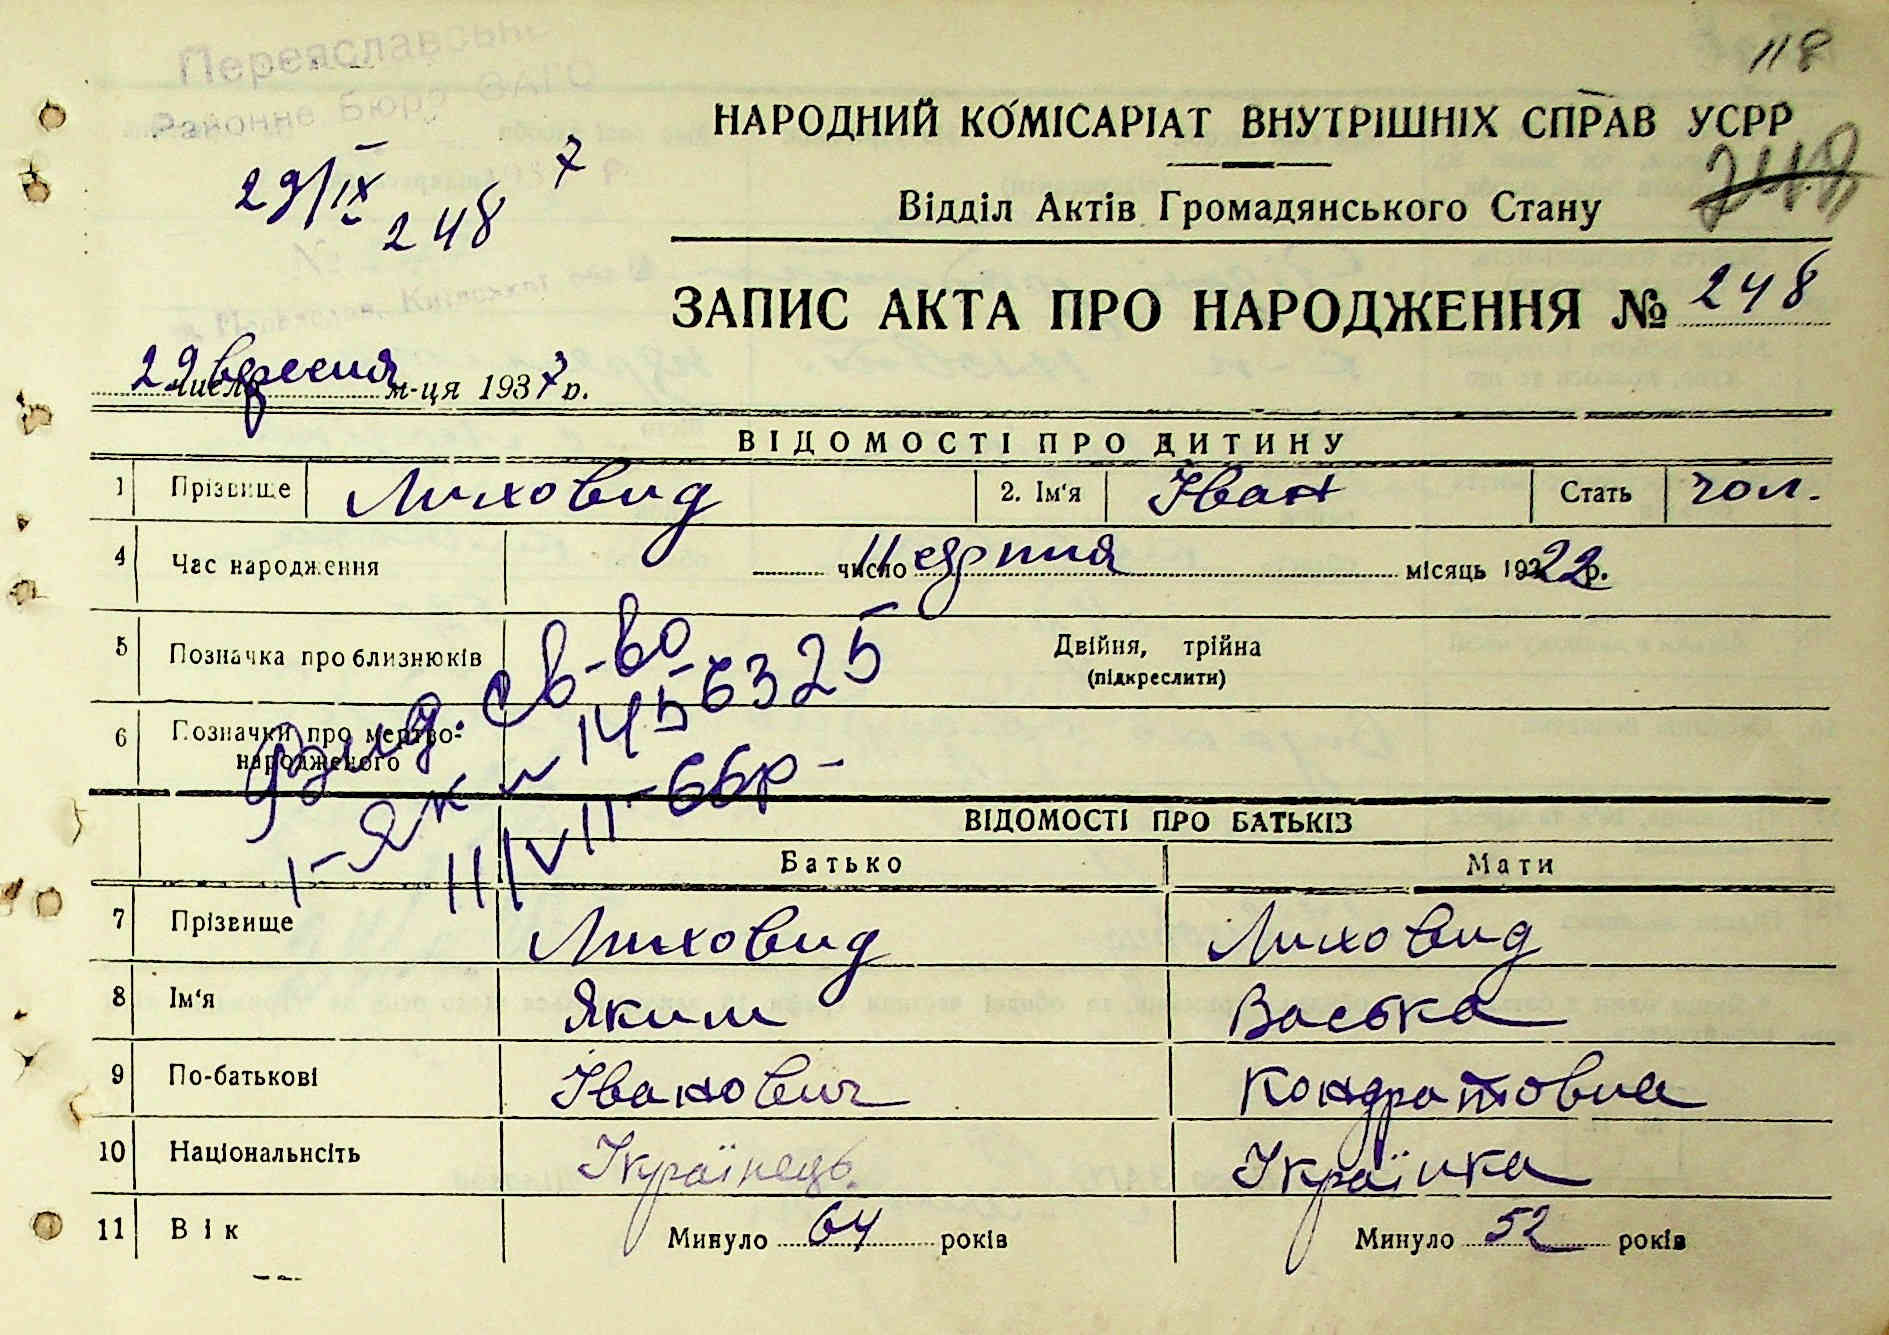 118
Переяславське
Районне Бюро ЗАГС
НАРОДНИЙ КОМІСАРІАТ ВНУТРІШНІХ СПРАВ УСРР
29/IX 7
248
248
Відділ Актів Громадянського Стану
ЗАПИС АКТА ПРО НАРОДЖЕННЯ № 248
29 числа вересня м-ця 1937 р.
ВІДОМОСТІ ПРО ДИТИНУ
1 Прізвище Лиховид 2. Ім'я Іван Стать чол.
4 Час народження 11 число серпня місяць 1922 р.
5 Позначка про близнюків Двійня, трійна
(підкреслити)
6 Позначки про мертво-
народженого
Вид. св-во
1-ЯК № 1456325
11/VII-66р-
ВІДОМОСТІ ПРО БАТЬКІВ
Батько Мати
7 Прізвище Лиховид Лиховид
8 Ім'я Яким Васька
9 По-батькові Іванович Кондратовна
10 Національнсіть Українець. Українка
11 Вік Минуло 64 років Минуло 52 років